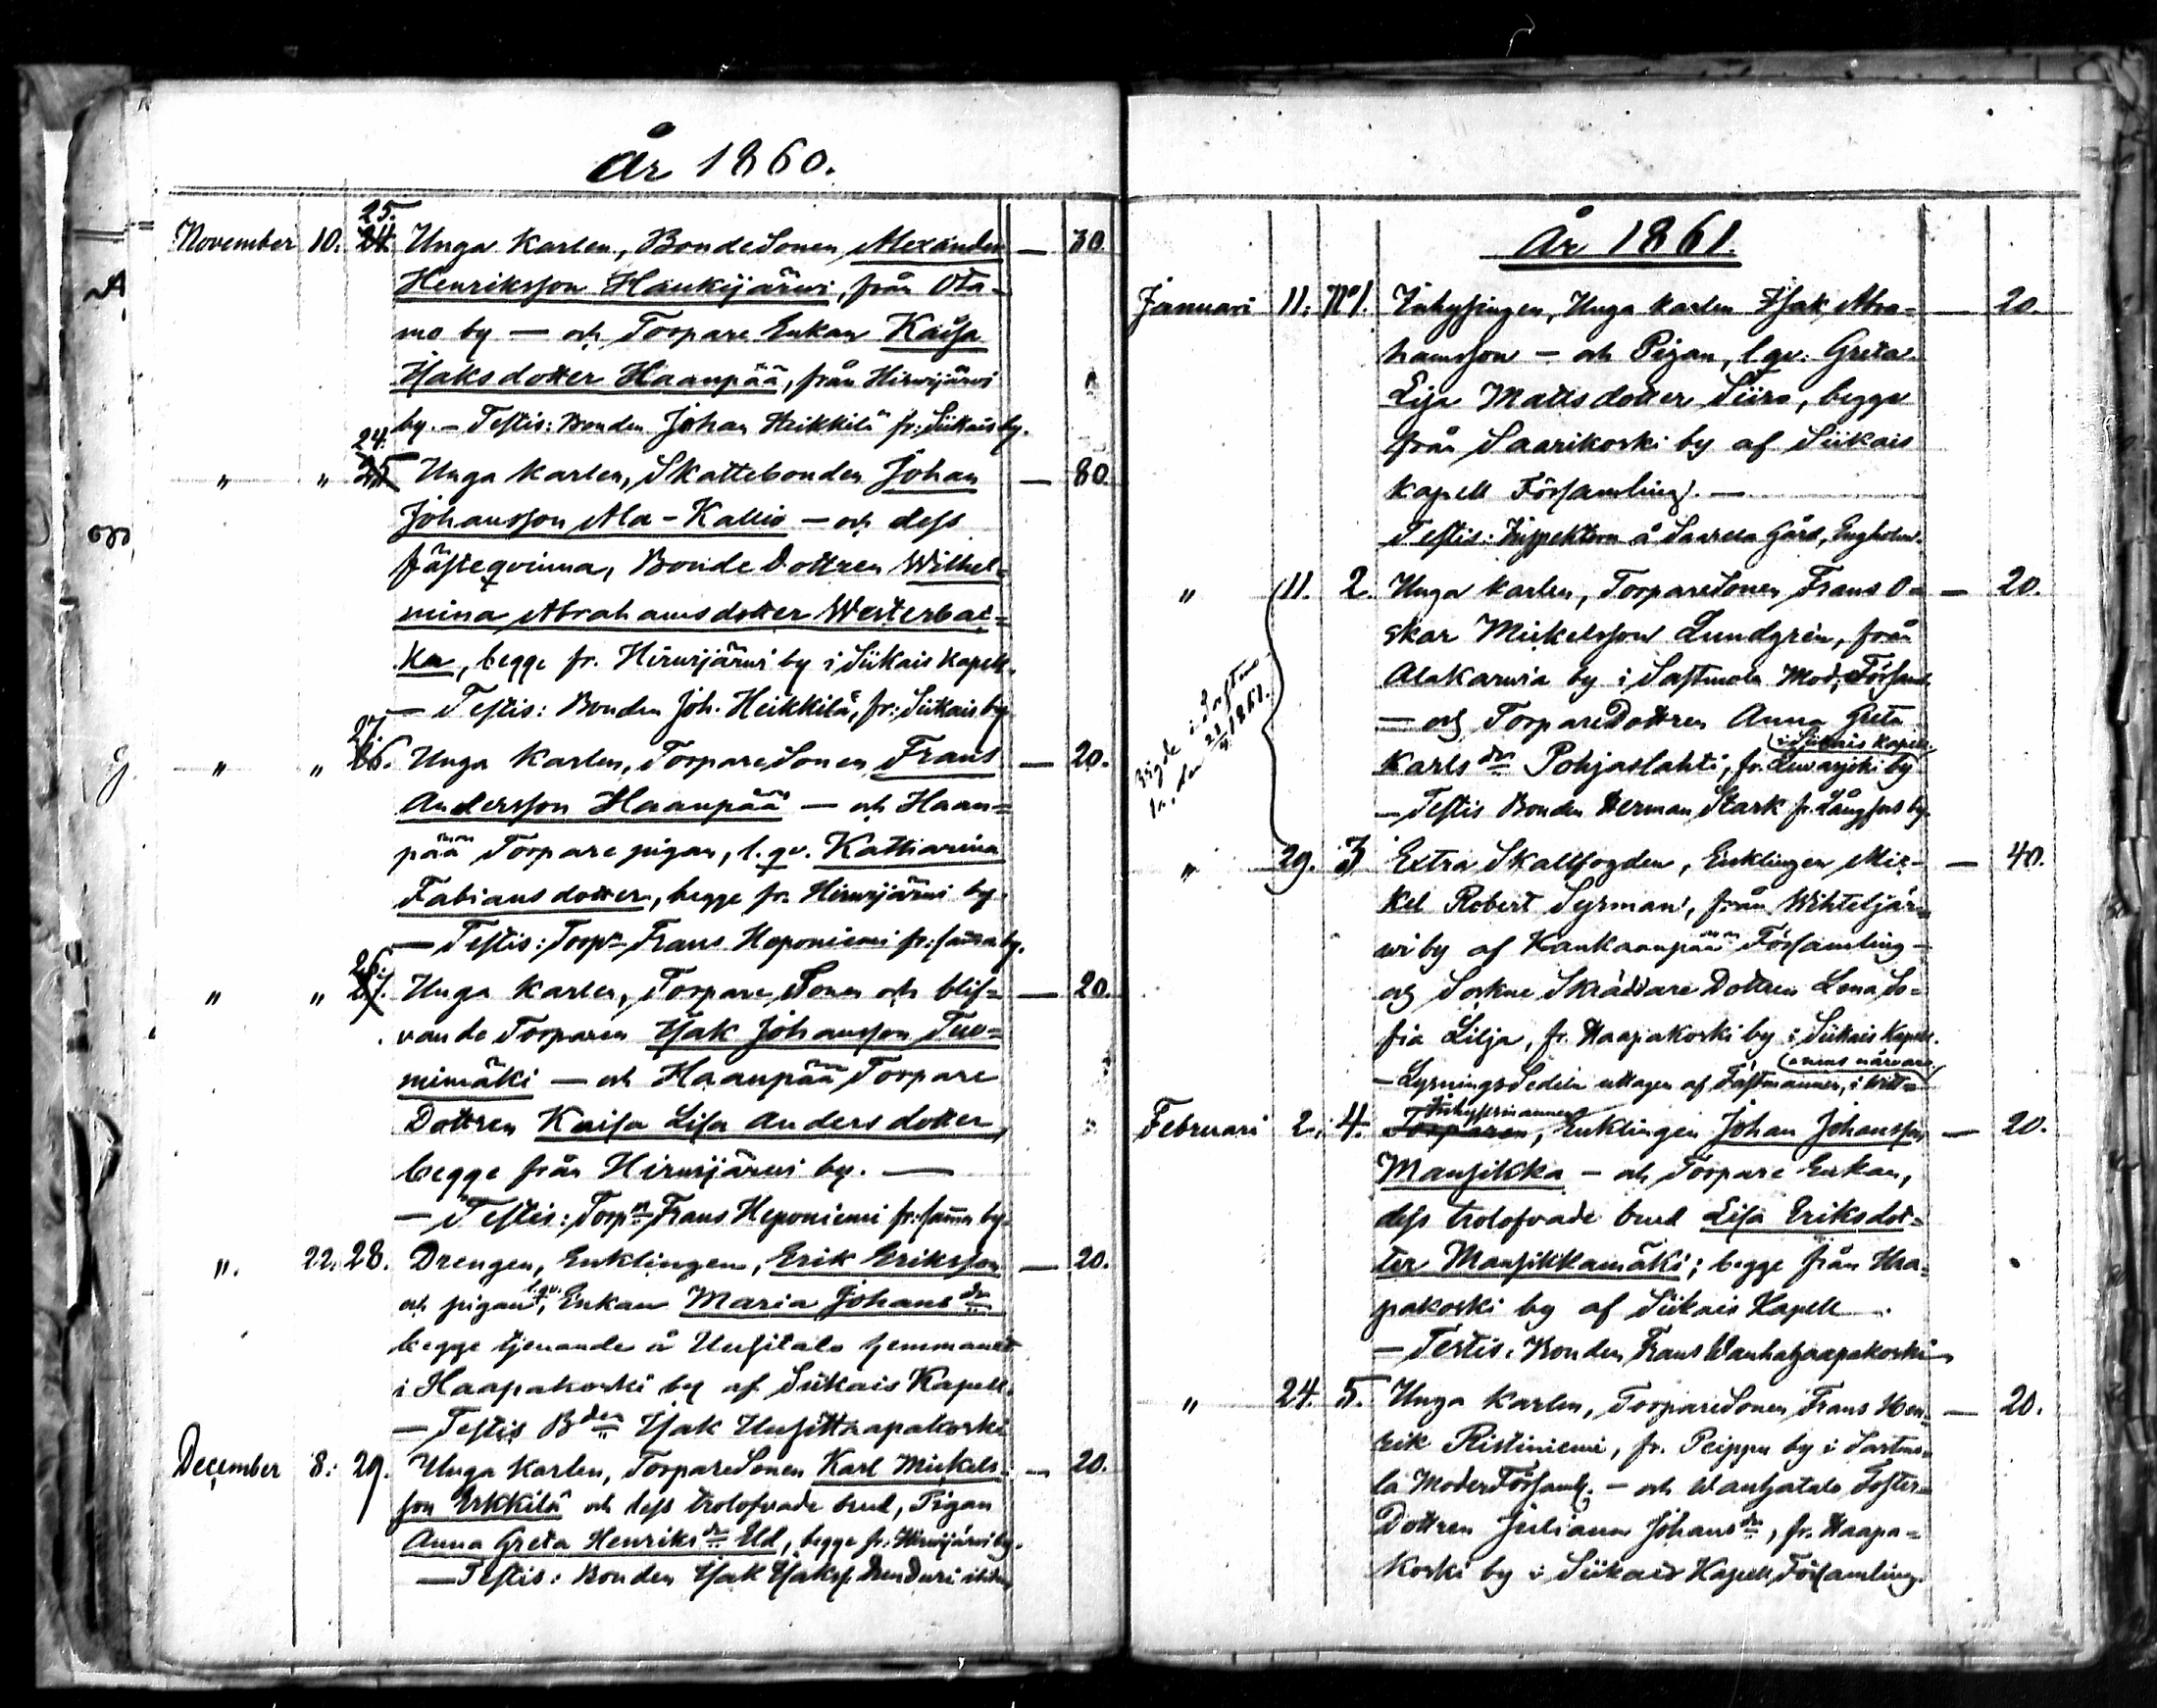 År 1860.
November 10. 25. 24. Unga Karlen, BondeSonen Alexander — 30.
Henriksson Haukijärwi, från Ota-
mo by — och Torpare Enkan Kaisa
Isaksdotter Haanpää, från Hirwijärwi
by. — Testis: Bonden Johan Heikkilä fr: Siikais by.
" " 24. 25 Unga Karlen, Skattebonden Johan — 80.
Johansson Ala-Kallio — och dess
fästeqvinna, Bonde Dottren Wilhel-
mina Abrahamsdotter Westerbac-
ka, begge fr. Hirwijärwi by i Siikais Kapell.
— Testis: Bonden Joh. Heikkilä, fr: Siikais by
" " 27. 26. Unga Karlen, TorpareSonen Frans — 20.
Andersson Haanpää — och Haan-
pää Torpare pigan, l. qv. Katharina
Fabiansdotter, begge fr. Hirwijärwi by.
— Testis: Torpn Frans Heponiemi fr: samma by.
" " 26. 27. Unga Karlen, Torpare Sonen och blif- — 20.
vande Torparen Isak Johansson Tuo-
mimäki — och Haanpää Torpare
Dottren Kaisa Lisa Andersdotter,
begge från Hirwijärwi by. —
— Testis: Torpn Frans Heponiemi fr: samma by.
". 22. 28. Drengen, Enklingen, Erik Eriksson — 20.
och pigan, l. qv. Enkan Maria Johansdr
begge tjenande å Uusitalo hemmanet
i Haapakoski by af Siikais Kapell.
— Testis Bden Isak Uusihaapakoski
December 8: 29. Unga Karlen, TorpareSonen Karl Mickels- — 20.
son Erkkilä och dess trolofvade brud, Pigan
Anna Greta Henriksdr Uld, begge fr: Hirwijärwi by.
— Testis: Bonden Isak Isakss.
År 1861.
Januari 11. No 1. Inhysingen, Unga Karlen Isak Abra- — 20.
hamsson — och Pigan, l. qv. Greta
Lisa Mattsdotter Siiro, begge
från Saarikoski by af Siikais
Kapell Församling. —
Testis: Inspektorn å Saarela Gård, Engholm.
" 11. 2. Unga Karlen, TorpareSonen Frans O- — 20.
skar Mickelsson Lundgrén, från
Alakarwia by i Sastmola Mod. Församl.
— och TorpareDottren Anna Greta
i Siikais Kapell
Karlsdr Pohjaslahti, fr. Leväsjoki by
— Testis Bonden Herman Stark fr. Långfors by.
Vigde i Sastmo-
la, den 21/4 1861.
" 29. 3 Extra Skallfogden, Enklingen Mic- — 40.
kel Robert Syrman, från Wihteljär-
wi by af Kankaanpää Församling —
och Sockne Skräddare Dottren Lena So-
fia Lilja, fr. Haapakoski by i Siikais Kapell.
— LysningsSedeln uttagen af Fästmannen, i witt-
nens närvaro
Februari 2. 4. Inhysesmannen Torparen, Enklingen Johan Johansson — 20.
Mansikka — och Torpare Enkan,
dess trolofvade brud Lisa Eriksdot-
ter Mansikkamäki; begge från Haa-
pakoski by af Siikais Kapell.
— Testis. Bonden Frans Wanhahaapakoski
" 24. 5. Unga Karlen, TorpareSonen Frans Hen- — 20.
rik Ristiniemi, fr. Peippu by i Sastmo-
la ModerFörsaml. — och Wanhatalo Foster-
Dottren Juliana Johansdr, fr. Haapa-
koski by i Siikais Kapell Församling.